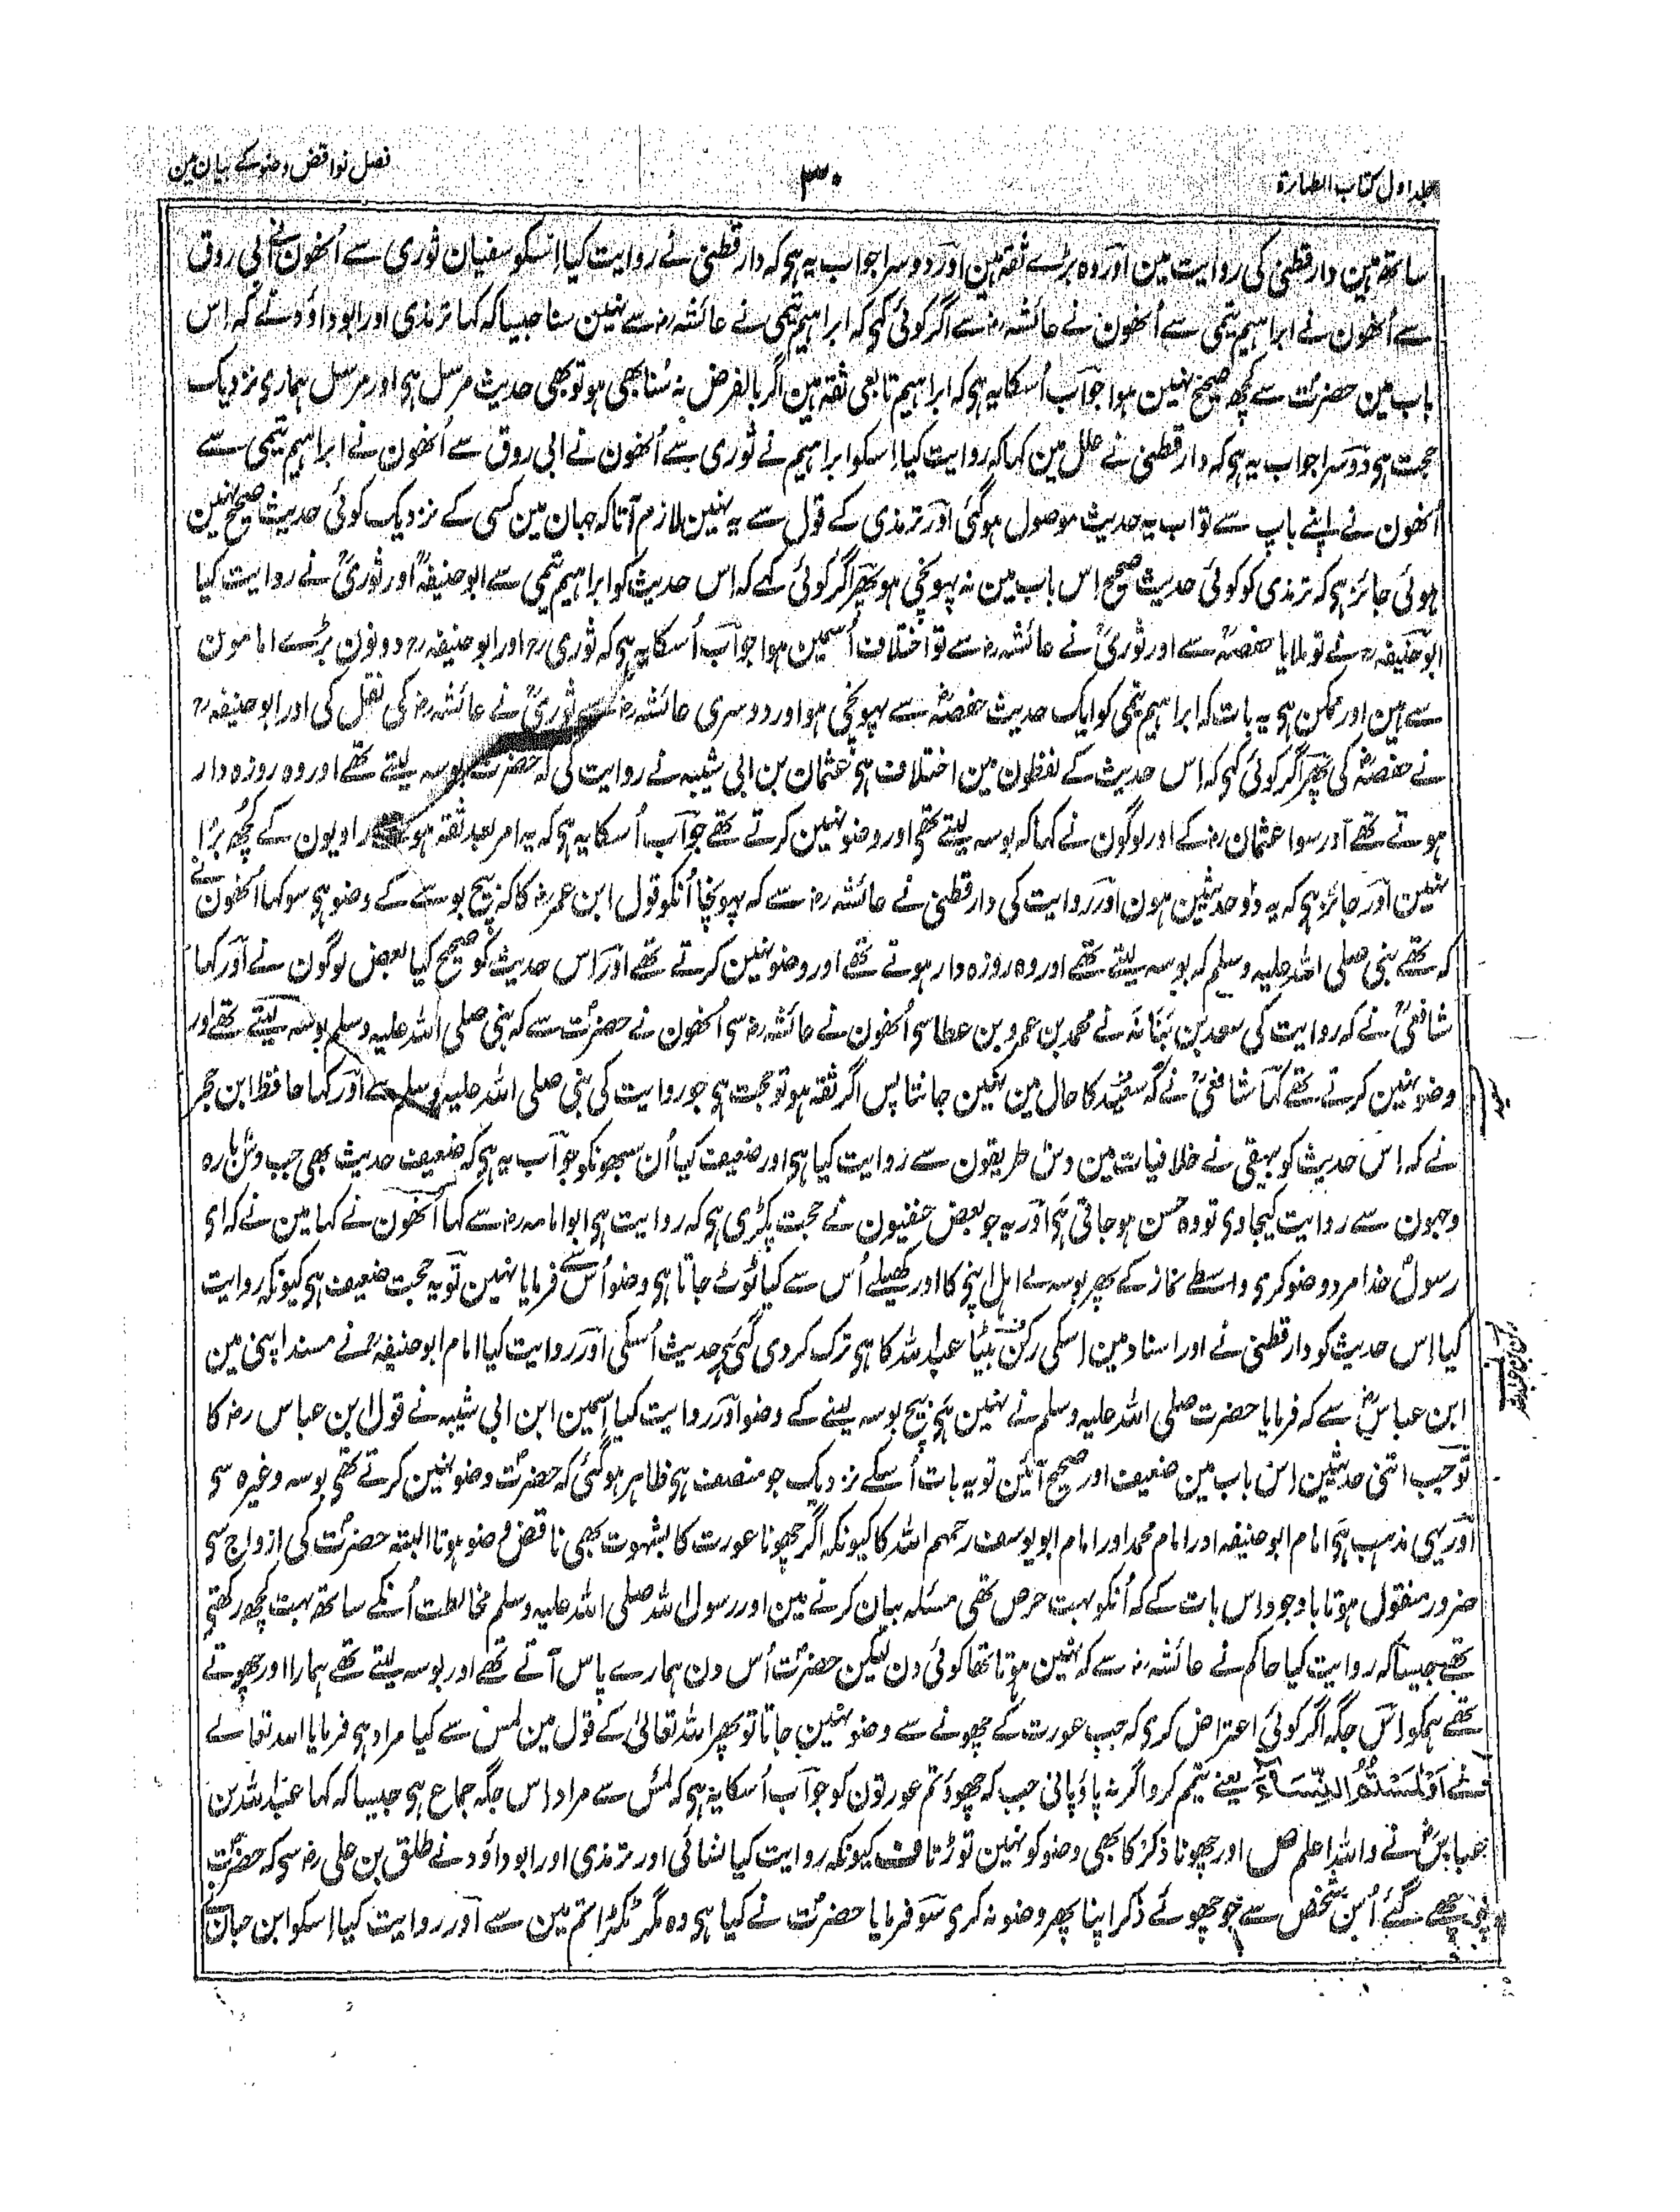 جلد اول کتاب الطہارۃ
۳۰
فصل نواقض وضو کے بیان مین
ساتھ ہین دارقطنی کی روایت مین اور وہ بڑے ثقہ ہین اور دوسرا جواب یہ ہی کہ دارقطنی نے روایت کیا اِسکو سفیان ثوری سے اُنھون نے ابی روق
سے اُنھون نے ابراہیم تیمی سے اُنھون نے عائشہ رضہ سے اگر کوئی کہی کہ ابراہیم تیمی نے عائشہ رضہ سے نہین سنا جیسا کہ کہا ترمذی اور ابوداؤد نے کہ اِس
باب مین حضرت سے کچھ صحیح نہین ہوا جواب اُسکا یہ ہی کہ ابراہیم تابعی ثقہ ہین اگر بالفرض نہ سُنا بھی ہو تو بھی حدیث مرسل ہی اور مرسل ہماری نزدیک
حجت ہی دوسرا جواب یہ ہی کہ دارقطنی نے علل مین کہا کہ روایت کیا اِسکو ابراہیم نے ثوری سے اُنھون نے ابی روق سے اُنھون نے ابراہیم تیمی سے
اُنھون نے اپنے باپ سے تو اب یہ حدیث موصول ہوگئی اور ترمذی کے قول سے یہ نہین لازم آتا کہ جہان مین کسی کے نزدیک کوئی حدیث صحیح نہین
ہوئی جائز ہی کہ ترمذی کو کوئی حدیث صحیح اس باب مین نہ پہونچی ہو پھر اگر کوئی کہے کہ اِس حدیث کو ابراہیم تیمی سے ابوحنیفہؒ اور ثوریؒ نے روایت کیا
ابوحنیفہ رح نے تو ملایا حفصہؓ سے اور ثوریؒ نے عائشہ رضہ سے تو اختلاف اُسمین ہوا جواب اُسکا یہ ہی کہ ثوری رح اور ابوحنیفہ رح دونون بڑے امامون
سے ہین اور ممکن ہی یہ بات کہ ابراہیم تیمی کو ایک حدیث حفصہؓ سے پہونچی ہو اور دوسری عائشہ رضہ سے ثوریؒ نے عائشہ رضہ کی نقل کی اور ابوحنیفہ رح
نے حفصہؓ کی پھر اگر کوئی کہی کہ اِس حدیث کے لفظون مین اختلاف ہی عثمان بن ابی شیبہ نے روایت کی کہ حضرت بوسہ لیتے تھے اور وہ روزہ دار
ہوتے تھے اور سوا عثمان رضہ کے اور لوگون نے کہا کہ بوسہ لیتے تھی اور وضو نہین کرتے تھے جواب اُسکا یہ ہی کہ یہ امر بعد ثقہ ہونے راویون کے کچھ بڑا
نہین اور جائز ہی کہ یہ دو حدیثین ہون اور روایت کی دارقطنی نے عائشہ رضہ سے کہ پہونچا اُنکو قول ابن عمر رضہ کا کہ بیچ بوسے کے وضو ہی سو کہا اُنھون نے
کہ تھے نبی صلی اللہ علیہ وسلم کہ بوسہ لیتے تھے اور وہ روزہ دار ہوتے تھے اور وضو نہین کرتے تھے اور اس حدیث کو صحیح کیا بعض لوگون نے اور کہا
شافعیؒ نے کہ روایت کی سعد بن بنانہ نے محمد بن عمرو بن عطا سی اُنھون نے عائشہ رضہ سی اُنھون نے حضرت سے کہ نبی صلی اللہ علیہ وسلم بوسہ لیتے تھے اور
وضو نہین کرتے تھے کہا شافعیؒ نے کہ سعد کا حال مین نہین جانتا پس اگر ثقہ ہو تو حجت ہی جو روایت کی نبی صلی اللہ علیہ وسلم سے اور کہا حافظ ابن حجر
نے کہ اِس حدیث کو بیہقی نے خلافیات مین دس طریقون سے روایت کیا ہی اور ضعیف کیا اُن سبھونکو جواب یہ ہی کہ ضعیف حدیث بھی جب دس بارہ
وجہون سے روایت کیجاوی تو وہ حسن ہوجاتی ہی اور یہ جو بعض حنفیون نے حجت پکڑی ہی کہ روایت ہی ابوامامہ رضہ سے کہا اُنھون نے کہا مین نے کہ ای
رسولؐ خدا مرد وضو کری واسطے نماز کے پھر بوسہ لے اہل اپنی کا اور کھیلے اُس سے کیا ٹوٹ جاتا ہی وضو اُس سے فرمایا نہین تو یہ حجت ضعیف ہی کیونکہ روایت
کیا اِس حدیث کو دارقطنی نے اور اسناد مین اسکی رکن بیٹا عبداللہ کا ہی ترک کردی گئی ہی حدیث اُسکی اور روایت کیا امام ابوحنیفہؒ نے مسند اپنی مین
ابن عباسؓ سے کہ فرمایا حضرت صلی اللہ علیہ وسلم نے نہین ہی بیچ بوسہ لینے کے وضو اور روایت کیا اِسمین ابن ابی شیبہ نے قول ابن عباس رضہ کا
تو جب اتنی حدیثین اس باب مین ضعیف اور صحیح آئین تو یہ بات اُسکے نزدیک جو منصف ہی ظاہر ہوگئی کہ حضرت وضو نہین کرتے تھی بوسہ وغیرہ سی
اور یہی مذہب ہی امام ابوحنیفہ اور امام محمد اور امام ابویوسف رحمہم اللہ کا کیونکہ اگر چھونا عورت کا بشہوت بھی ناقض وضو ہوتا البتہ حضرت کی ازواج سی
ضرور منقول ہوتا باوجود اس بات کے کہ اُنکو بہت حرص تھی مسئلہ بیان کرنے مین اور رسول اللہ صلی اللہ علیہ وسلم مخالطت اُنکے ساتھ بہت کچھ رکھتی
تھے جیسا کہ روایت کیا حاکم نے عائشہ رضہ سے کہ نہین ہوتا تھا کوئی دن لیکن حضرت اُس دن ہمارے پاس آتے تھے اور بوسہ لیتے تھے ہمارا اور چھوتے
تھے ہمکو اِس جگہ اگر کوئی اعتراض کری کہ جب عورت کے چھونے سے وضو نہین جاتا تو پھر اللہ تعالیٰ کے قول مین لمس سے کیا مراد ہی فرمایا اللہ تعالے
نے اَوْلٰمَسْتُمُ النِّسَآءَ یعنے تیمم کرو اگر نہ پاؤ پانی جب کہ چھوؤ تم عورتون کو جواب اُسکا یہ ہی کہ لمس سے مراد اس جگہ جماع ہی جیسا کہ کہا عبداللہ بن
عباسؓ نے واللہ اعلم ص اور چھونا ذکر کا بھی وضو کو نہین توڑتا ف کیونکہ روایت کیا نسائی اور ترمذی اور ابوداؤد نے طلق بن علی رضہ سی کہ حضرت
پوچھے گئے اُس شخص سے جو چھوئے ذکر اپنا پھر وضو نہ کری سو فرمایا حضرت نے کیا ہی وہ مگر ٹکڑا تم مین سے اور روایت کیا اِسکو ابن حبان نے